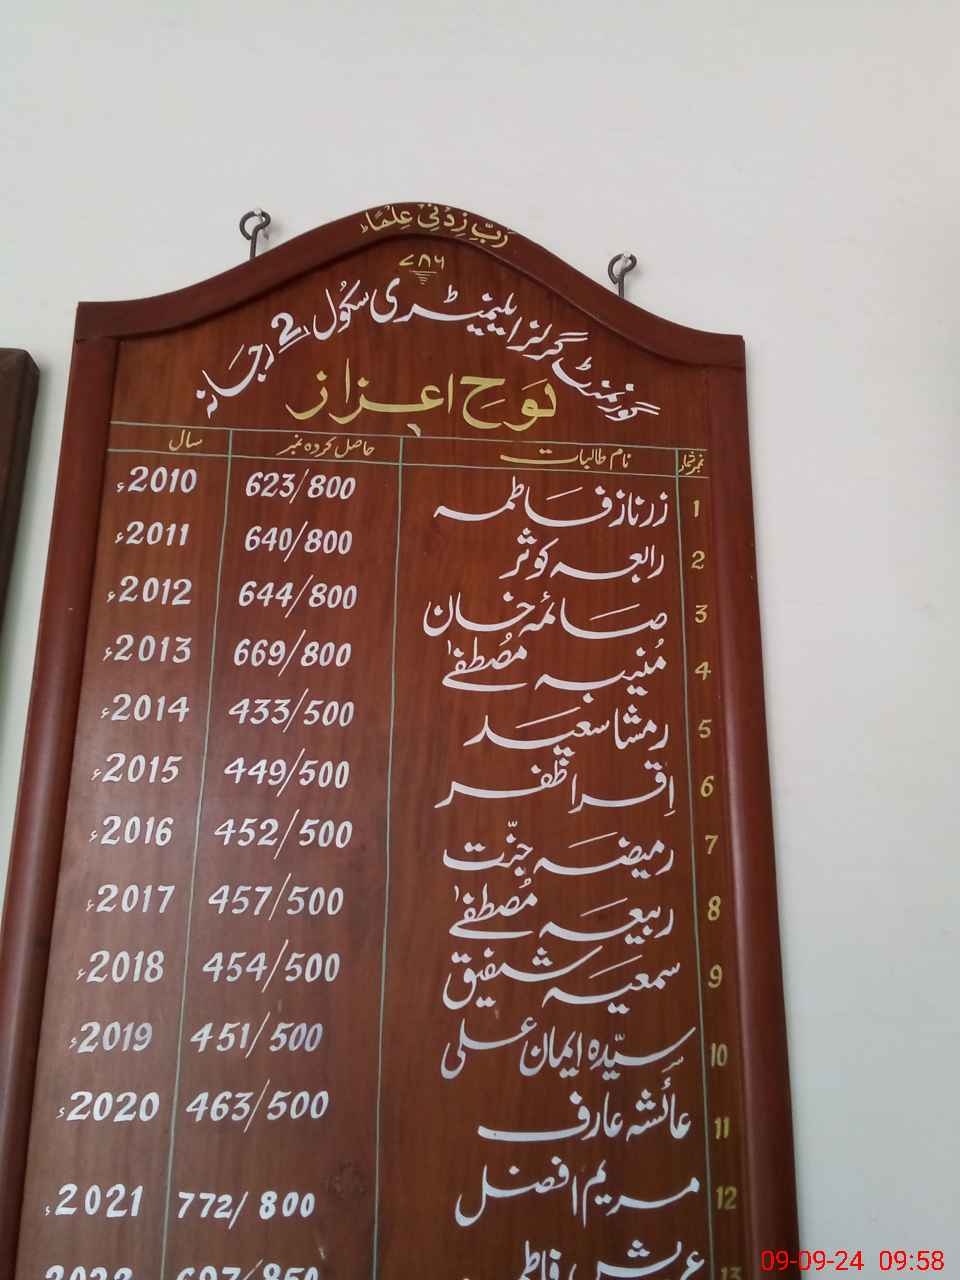 رَبِّ زِدْنِیْ عِلْمًا
۷۸۶
گورنمنٹ گرلز ایلیمنٹری سکُول 2 رجانہ
لوحِ اعزاز
نمبر شمار نام طالبات حاصل کردہ نمبر سال
1 زرناز فاطمہ 623/800 2010ء
2 رابعہ کوثر 640/800 2011ء
3 صائمہ خان 644/800 2012ء
4 مُنیبہ مُصطفےٰ 669/800 2013ء
5 رمشا سعید 433/500 2014ء
6 اِقرا ظفر 449/500 2015ء
7 رمیضہ جنّت 452/500 2016ء
8 ربیعہ مُصطفےٰ 457/500 2017ء
9 سمعیہ شفیق 454/500 2018ء
10 سیّدہ ایمان علی 451/500 2019ء
11 عائشہ عارف 463/500 2020ء
12 مریم افضل 772/800 2021ء
13 فاطمہ 697/850 2022
09-09-24 09:58